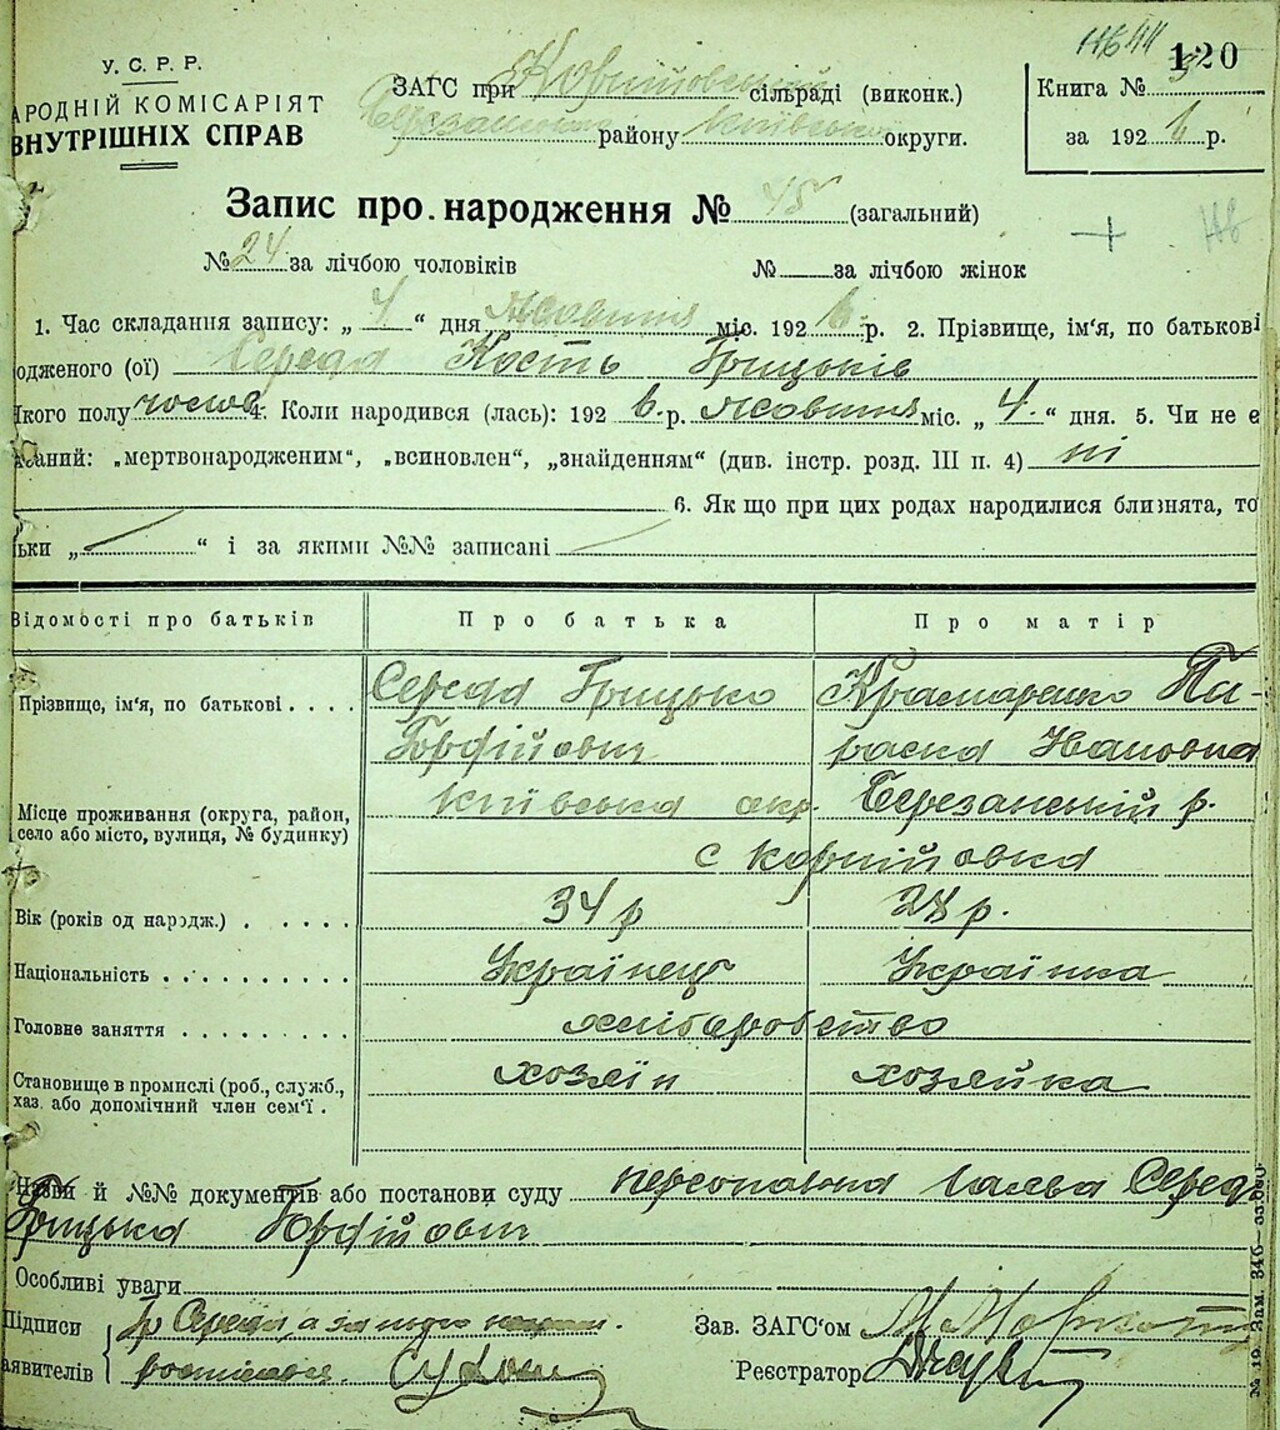 120
У. С. Р. Р.
АРОДНІЙ КОМІСАРІЯТ
ВНУТРІШНІХ СПРАВ
ЗАГС при Корнійовській сільраді (виконк.)
Березанського району Київської округи.
Книга №
за 192 6 р.
Запис про народження № 45 (загальний)
№ 24 за лічбою чоловіків № за лічбою жінок
1. Час складання запису: „ 4 “ дня Жовтня міс. 192 6 р. 2. Прізвище, ім‘я, по батькові
одженого (ої) Середа Кость Грицьків
якого полу чолов. 4. Коли народився (лась): 192 6 р. Жовтня міс. „ 4. “ дня. 5. Чи не є
заний: „мертвонародженим“, „всиновлен“, „знайденням“ (див. інстр. розд. III п. 4) ні
6. Як що при цих родах народилися близнята, то
ьки „ “ і за якими №№ записані
Відомості про батьків Про батька Про матір
Прізвище, ім‘я, по батькові . . . . Середа Грицько Крамаренко Па-
Гордійович раска Івановна
Місце проживання (округа, район, село або місто, вулиця, № будинку) Київська окр. Березанський р.
с Корнійовка
Вік (років од народж.) . . . . . 34 р 28 р.
Національність . . . . . . . . . . Українець Українка
Головне заняття . . . . . . . . . хліборобство
Становище в промислі (роб., служб., хаз. або допомічний член сем‘ї . хозяїн хозяйка
Назви й №№ документів або постанови суду персональна заява Середи
Грицька Гордійович
Особливі уваги
Підписи Гр Середа, а за нього неграм. Зав. ЗАГС‘ом
аявителів розписався. Реєстратор
№ 19. Зам. 346—33.000